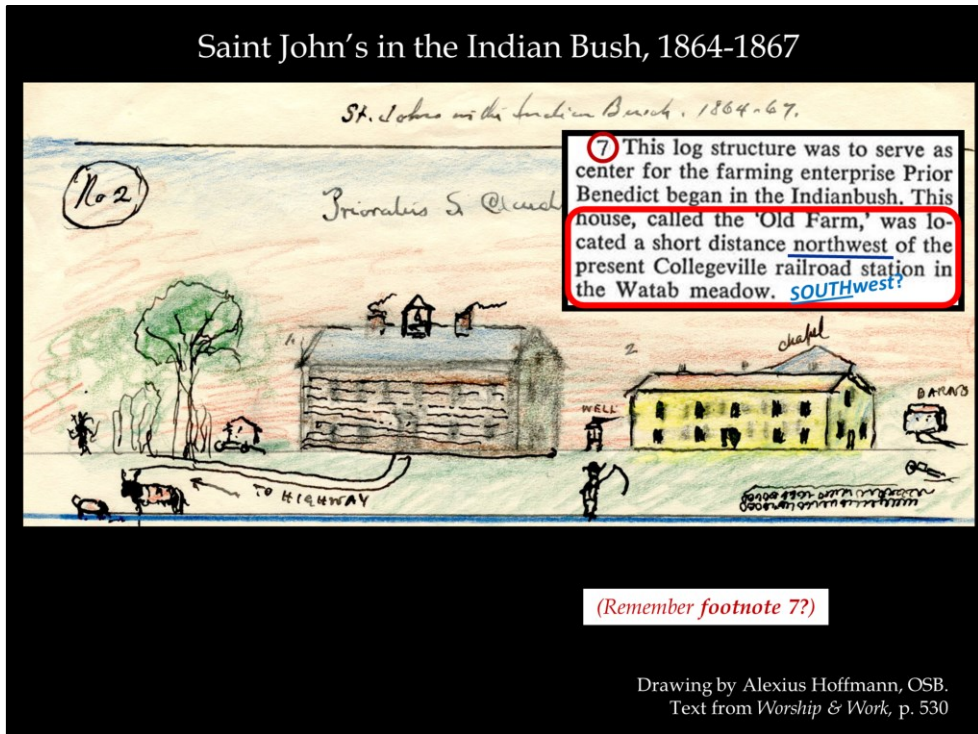 Saint John's in the Indian Bush, 1864-1867
St. Johns in the Indian Bush. 1864-67.
No 2
Prioratus S.
7 This log structure was to serve as
center for the farming enterprise Prior
Benedict began in the Indianbush. This
house, called the 'Old Farm,' was lo-
cated a short distance northwest of the
present Collegeville railroad station in
the Watab meadow. SOUTHwest?
chapel
1
2
WELL
BARNS
TO HIGHWAY
(Remember footnote 7?)
Drawing by Alexius Hoffmann, OSB.
Text from Worship & Work, p. 530